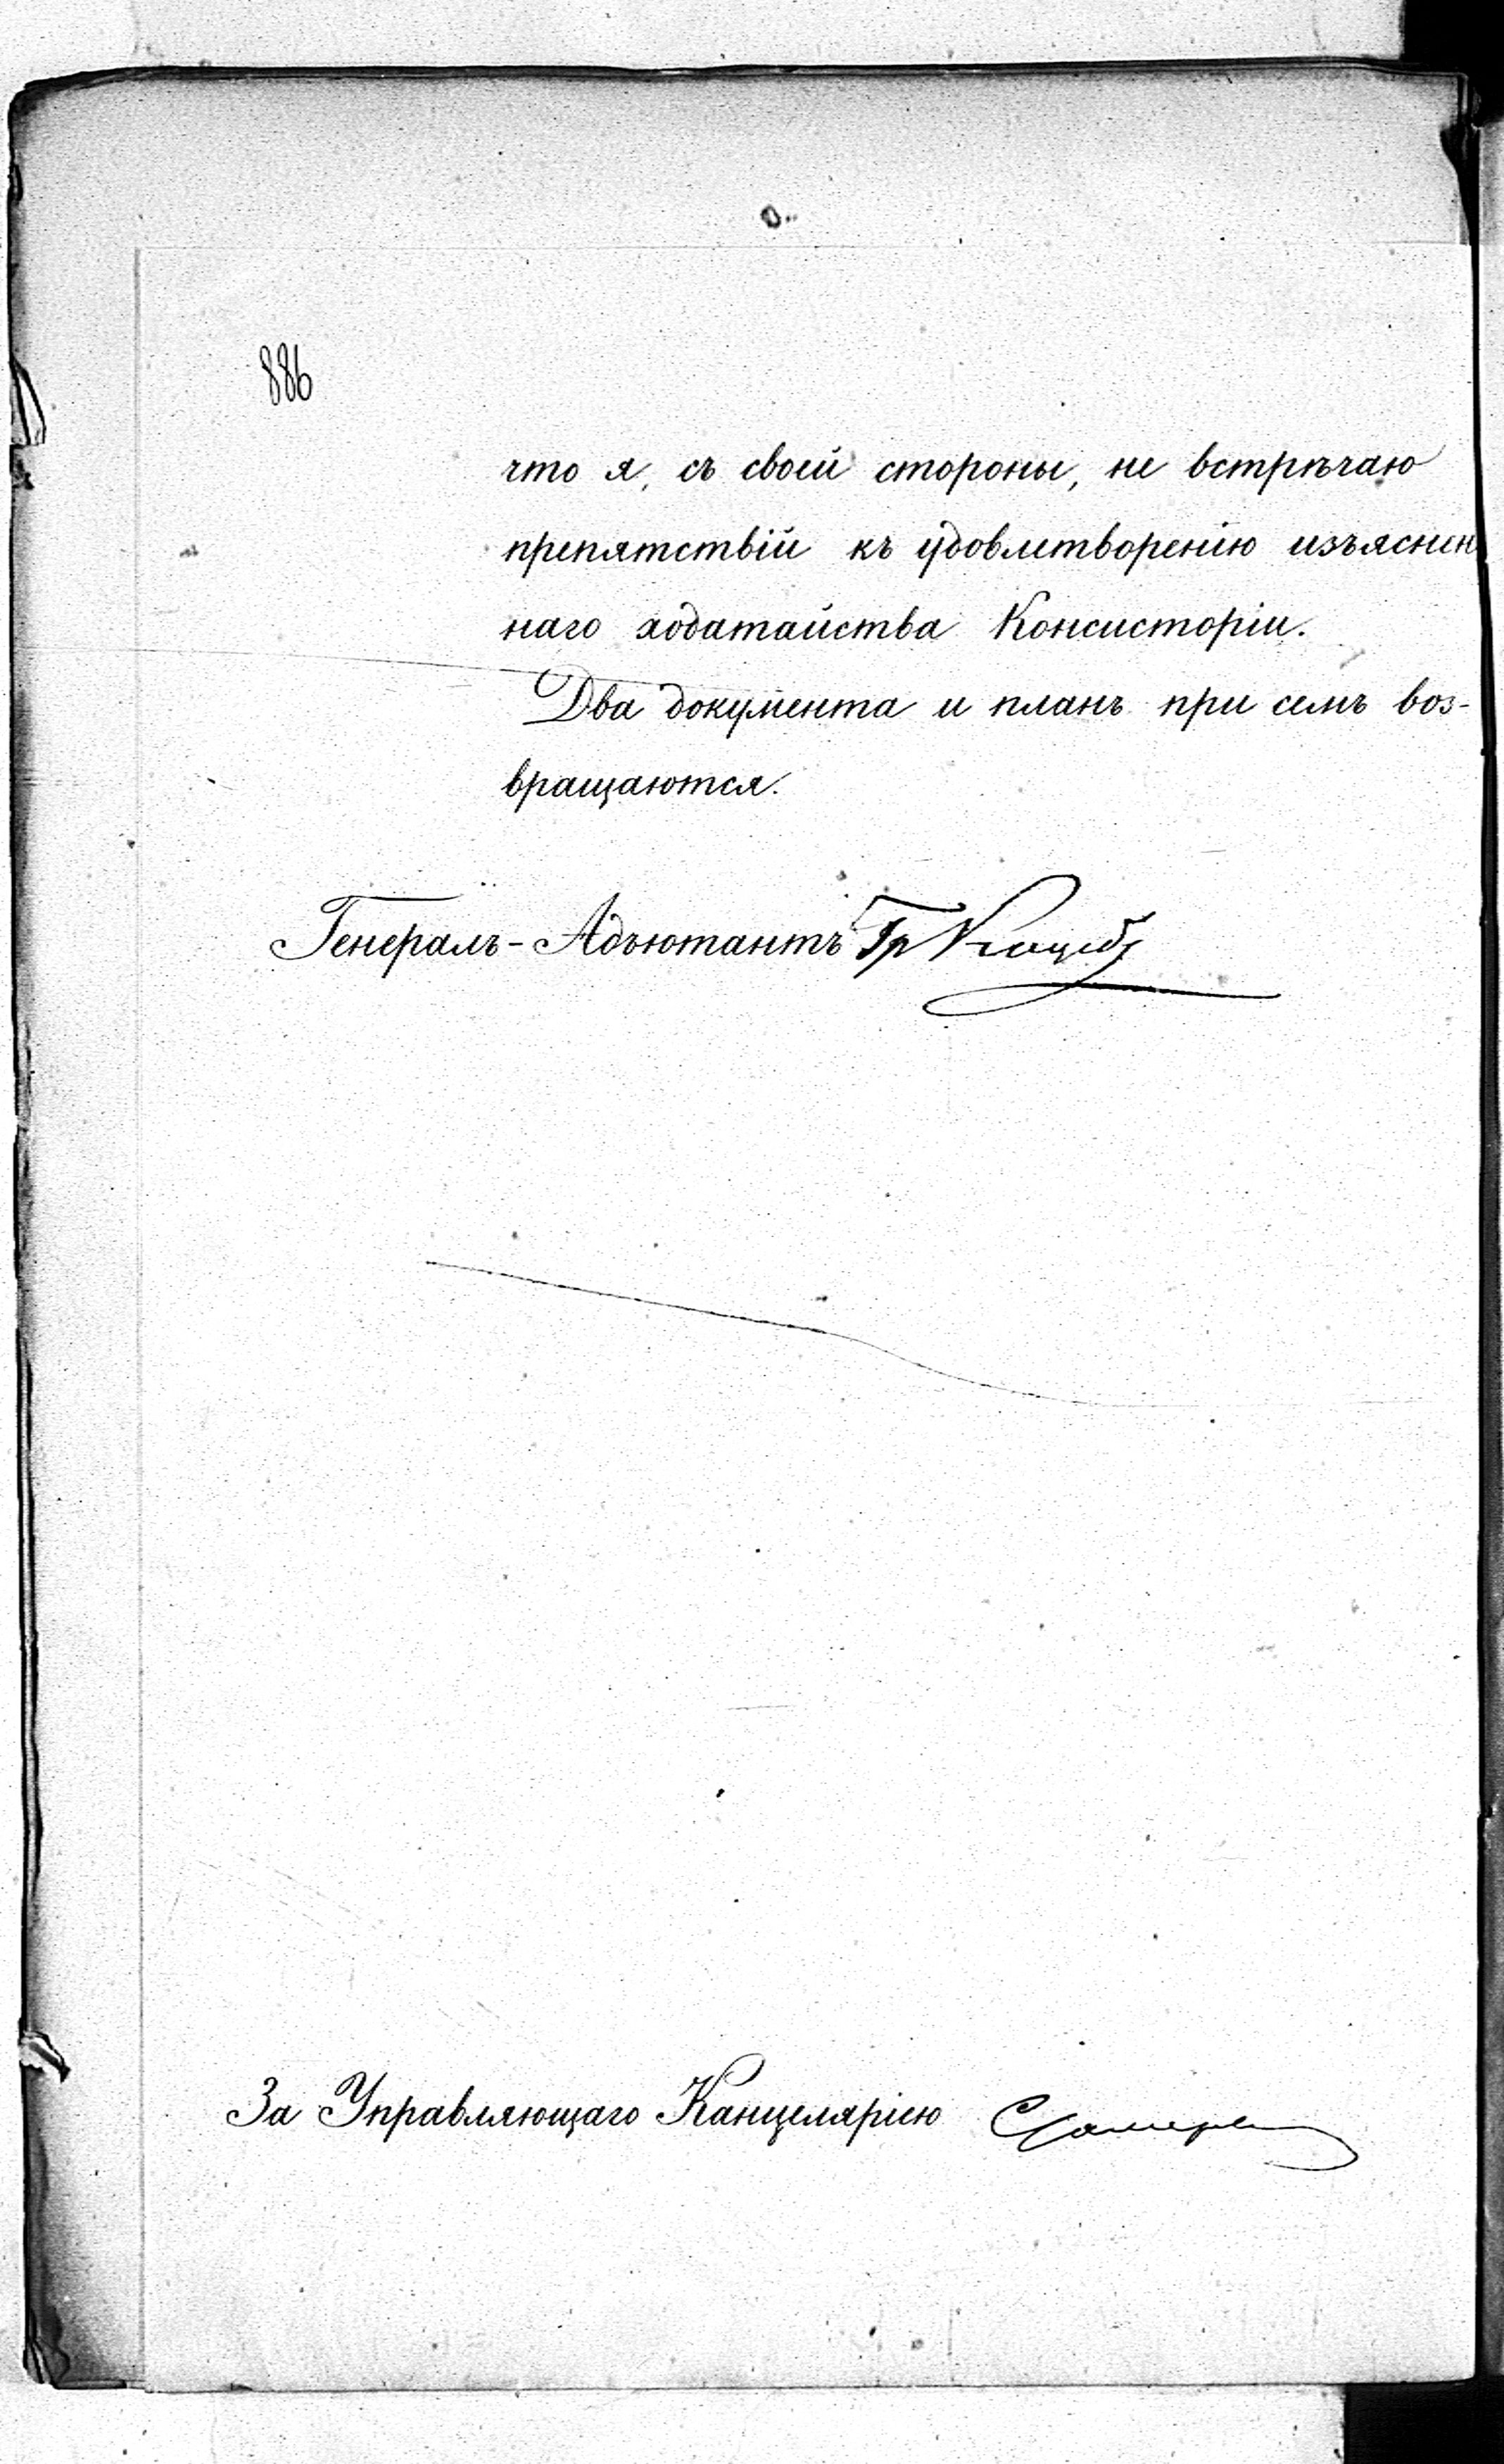 886
что я, съ своей стороны, не встрѣчаю
препятствій къ удовлетворенію изъяснен
наго ходатайства Консисторіи.
Два документа и планъ при семъ воз-
вращаются.
Генералъ-Адъютантъ Гр Коцебу
За Управляющаго Канцеляріею